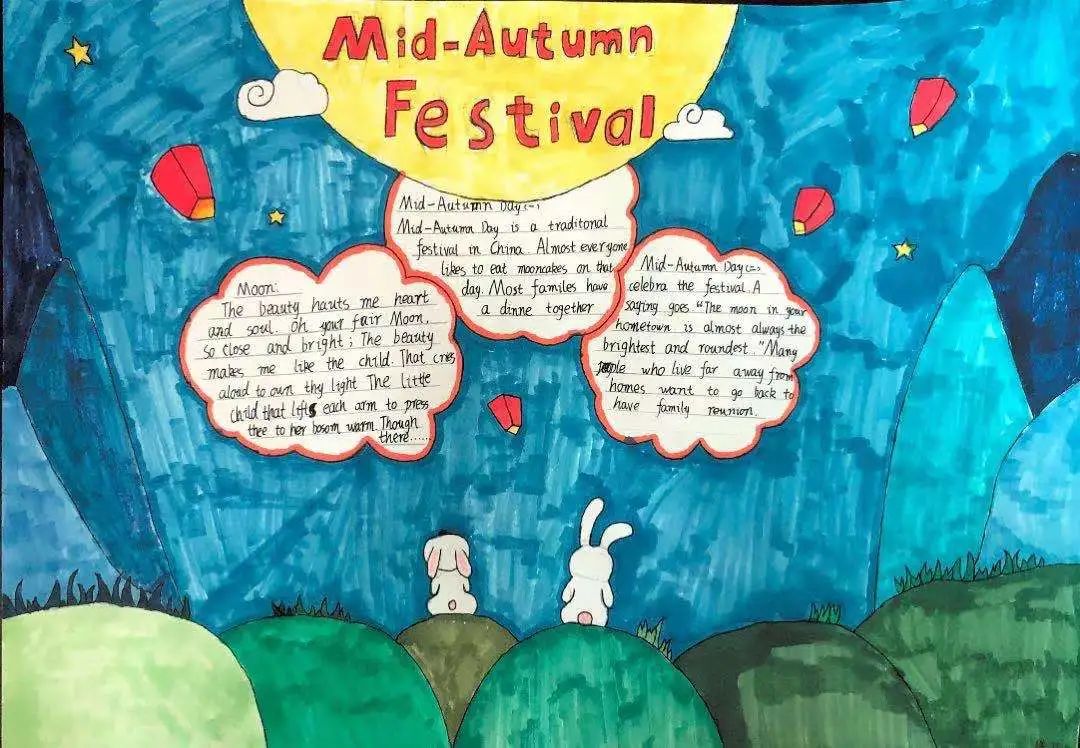 Mid-Autumn
Festival
Mid-Autumn Day(一)
Mid-Autumn Day is a traditonal
festival in China. Almost everyone
likes to eat mooncakes on that
day. Most familes have
a dinne together
Moon:
The beauty hauts me heart
and soul. Oh your fair Moon,
so close and bright; The beauty
makes me like the child. That cries
aload to own thy light The little
child that lifts each arm to press
thee to her bosom warm. Though
there......
Mid-Autumn Day(二)
celebra the festival. A
saying goes "The moon in your
hometown is almost always the
brightest and roundest." Many
people who live far away from
homes want to go back to
have family reunion.